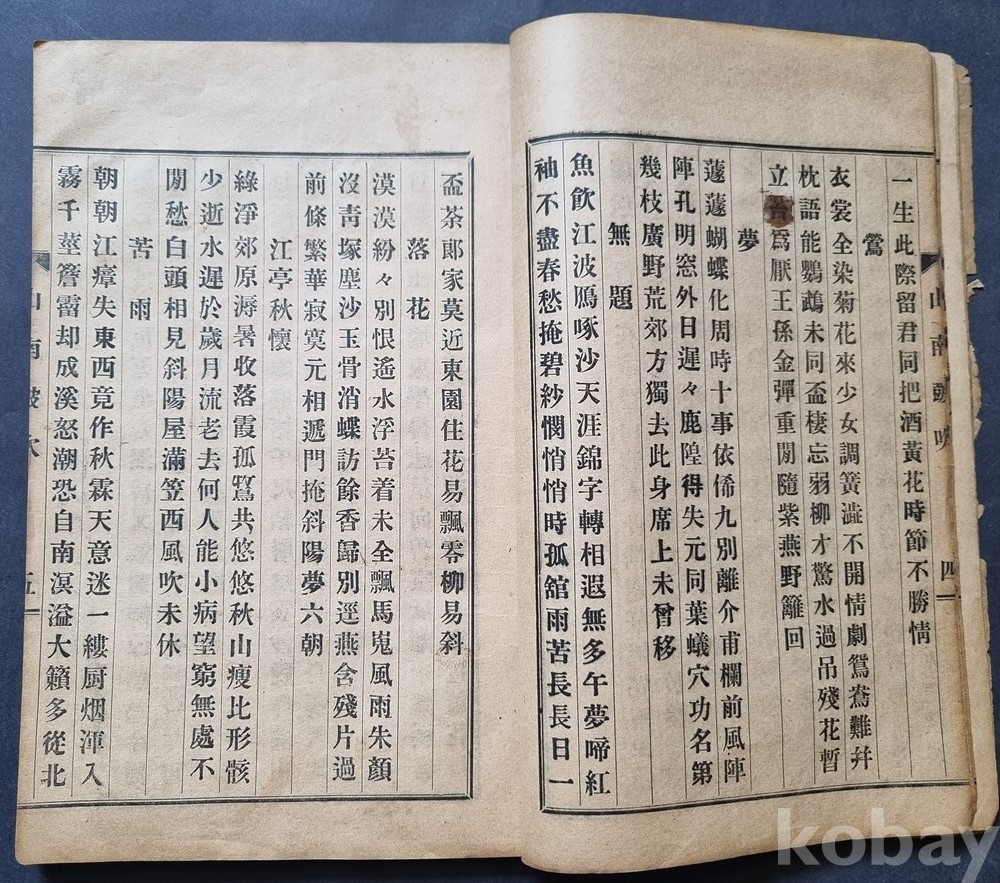 一生此際留君同把酒黃花時節不勝情
鶯
衣裳全染菊花來少女調簧澁不開情劇鴛鴦難幷
枕語能鸚鵡未同盃棲忘弱柳才驚水過吊殘花暫
立 爲厭王孫金彈重閒隨紫燕野籬回
夢
蘧蘧蝴蝶化周時十事依俙九別離介甫欄前風陣
陣孔明窓外日遲々鹿隍得失元同葉蟻穴功名第
幾枝廣野荒郊方獨去此身席上未曾移
無題
魚飮江波鴈啄沙天涯錦字轉相遐無多午夢啼紅
袖不盡春愁掩碧紗憫悄悄時孤舘雨苦長長日一
山南
四
盃茶郞家莫近東園住花易飄零柳易斜
落花
漠漠紛々別恨遙水浮苔着未全飄馬嵬風雨朱顏
沒靑塚塵沙玉骨消蝶訪餘香歸別逕燕含殘片過
前條繁華寂寞元相遞門掩斜陽夢六朝
江亭秋懷
綠淨郊原溽暑收落霞孤鶩共悠悠秋山瘦比形骸
少逝水遲於歲月流老去何人能小病望窮無處不
閒愁白頭相見斜陽屋滿笠西風吹未休
苦雨
朝朝江瘴失東西竟作秋霖天意迷一縷厨烟渾入
霧千莖簷霤却成溪怒潮恐自南溟溢大籟多從北
山南
五
kobay